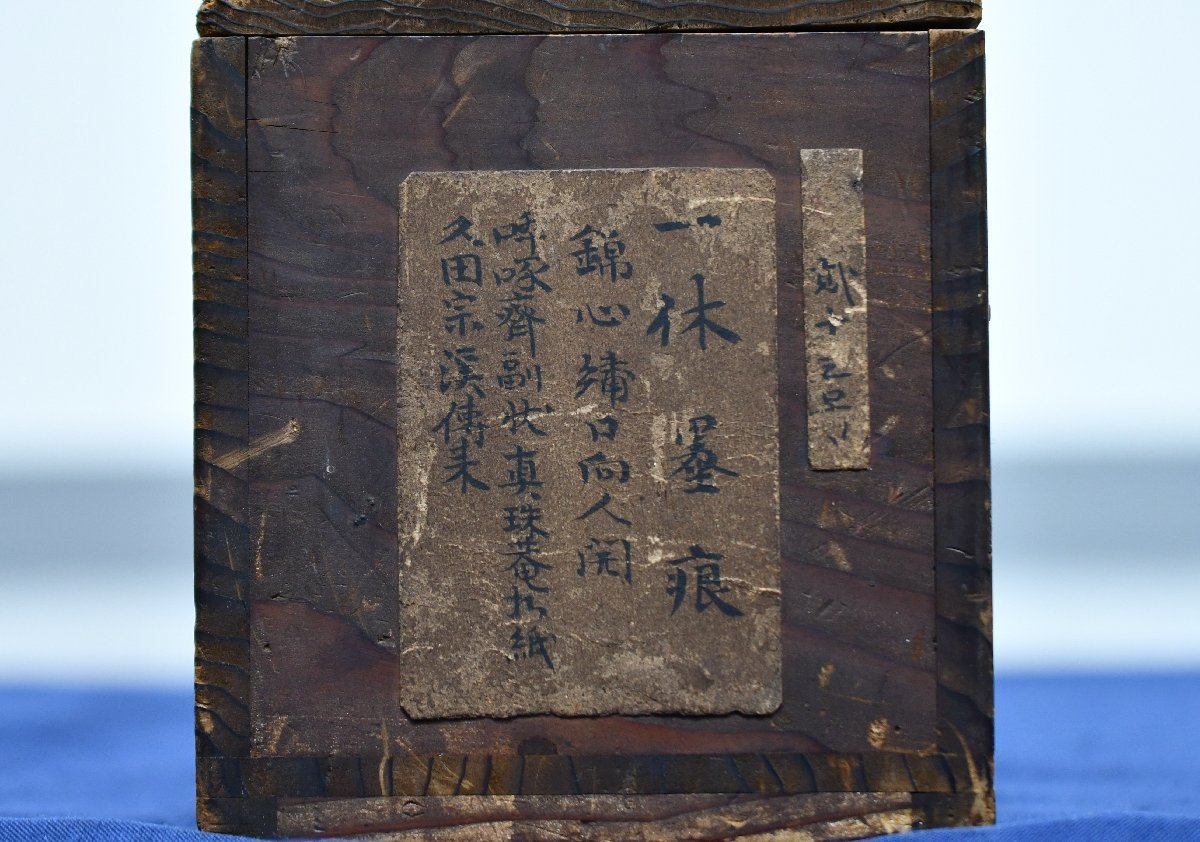 貳十三
一休墨痕
錦心繡口向人開
啐啄齋副状真珠菴折紙
久田宗溪傳来